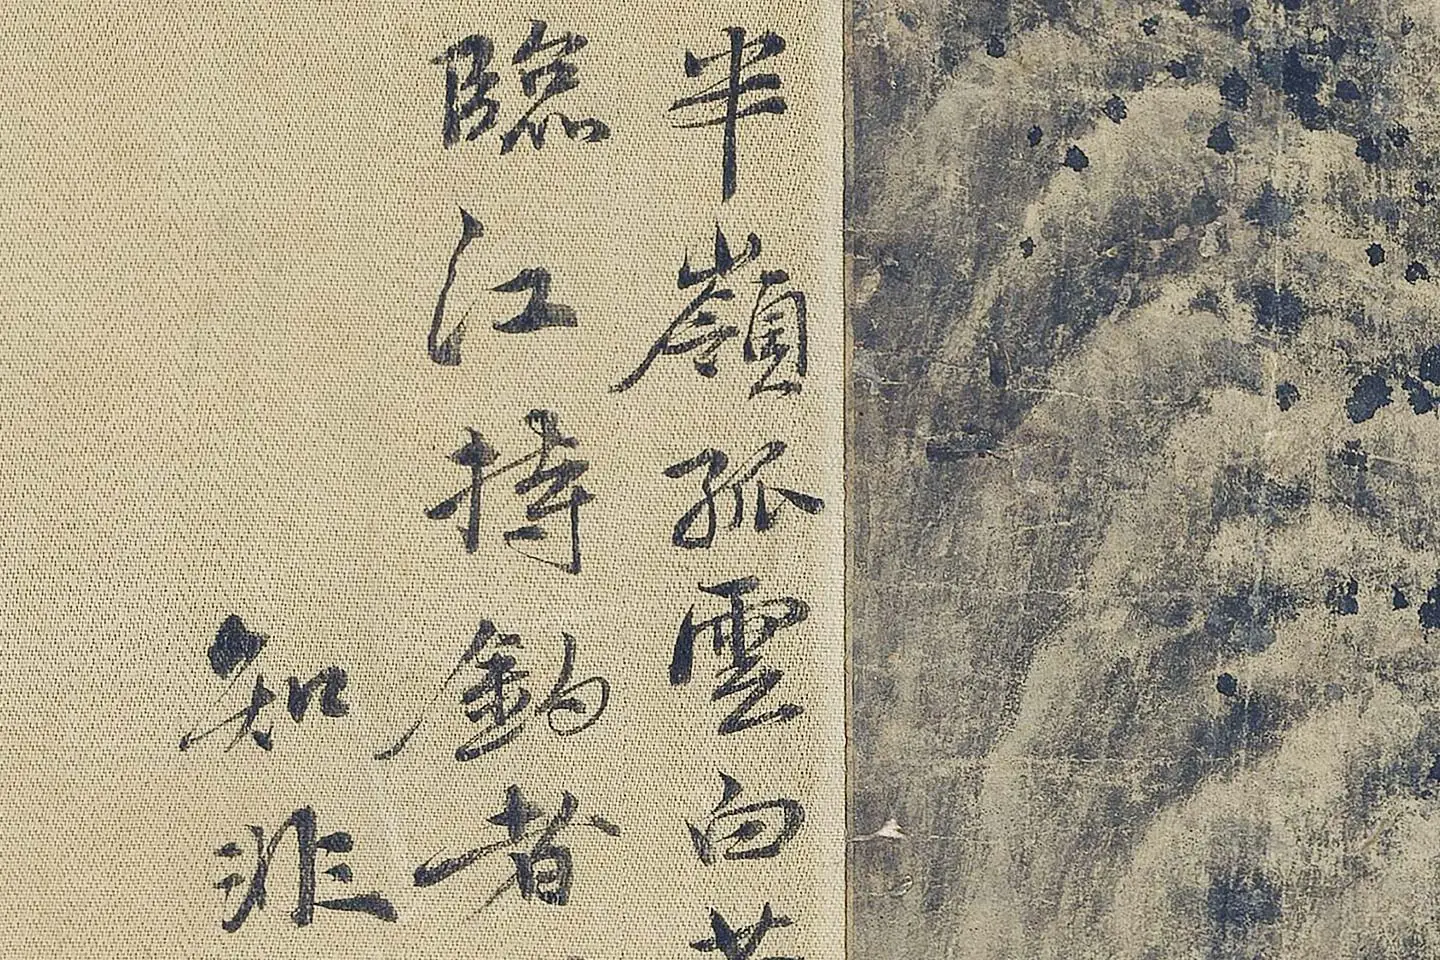 半嶺孤雲白
臨江持釣者
知非